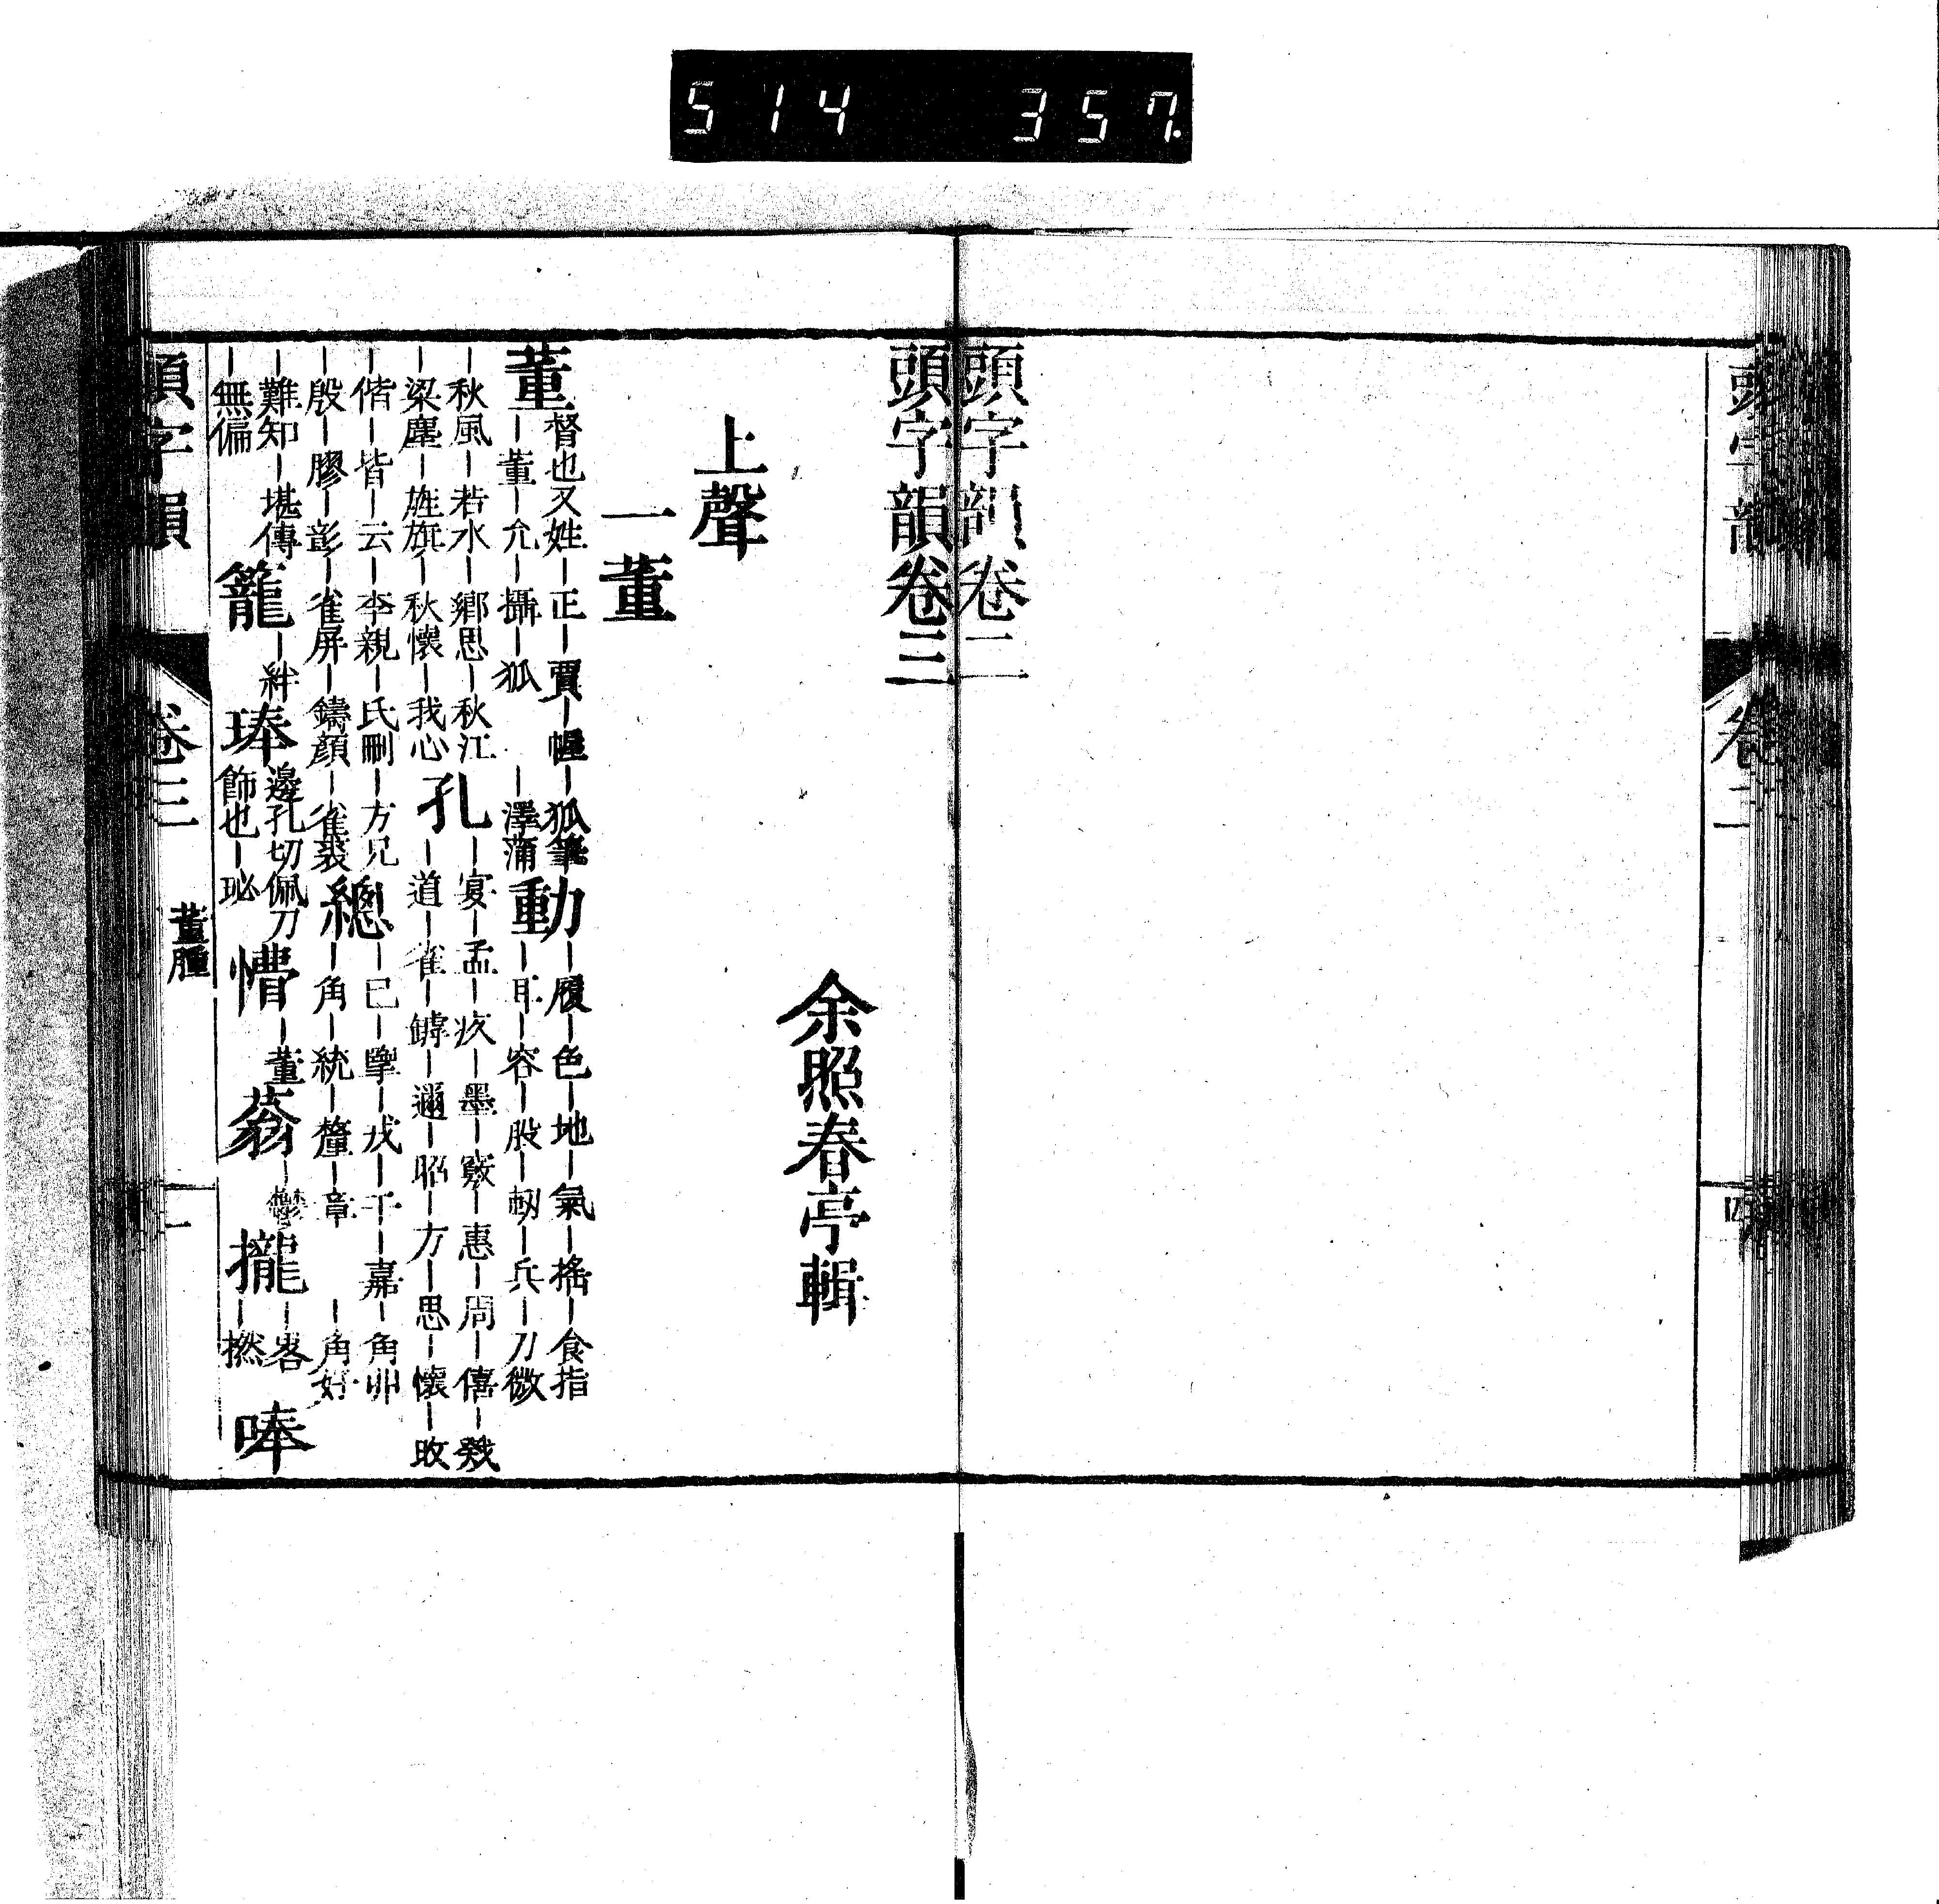 514 357.
頭字韻卷二
頭字韻卷三
余照春亭輯
上聲
一董
董督也又姓｜正｜賈｜幄｜狐筆
｜董｜允｜攝｜狐
｜澤蒲動｜履｜色｜地｜氣｜搖｜食指
｜耳｜容｜股｜韌｜兵｜刀微
｜秋風｜若水｜鄉思｜秋江
｜梁塵｜旌旗｜秋懷｜我心
孔｜宴｜孟｜疚｜墨｜竅｜惠｜周｜僖｜戣
｜道｜雀｜鎛｜邇｜昭｜方｜思｜懷｜敃
｜偕｜皆｜云｜李親｜氏刪｜方兄
｜殷｜膠｜彭｜雀屏｜鑄顏｜雀裘
總｜己｜擥｜戎｜干｜嘉｜角丱
｜角｜統｜釐｜章｜角好
｜難知｜堪傳
｜無偏
籠｜絆
琫邊孔切佩刀
飾也｜珌
懵｜董
蓊｜鬱
攏｜𠯗｜撚
唪
頭字韻 卷三 董腫 一
頭字韻 卷二